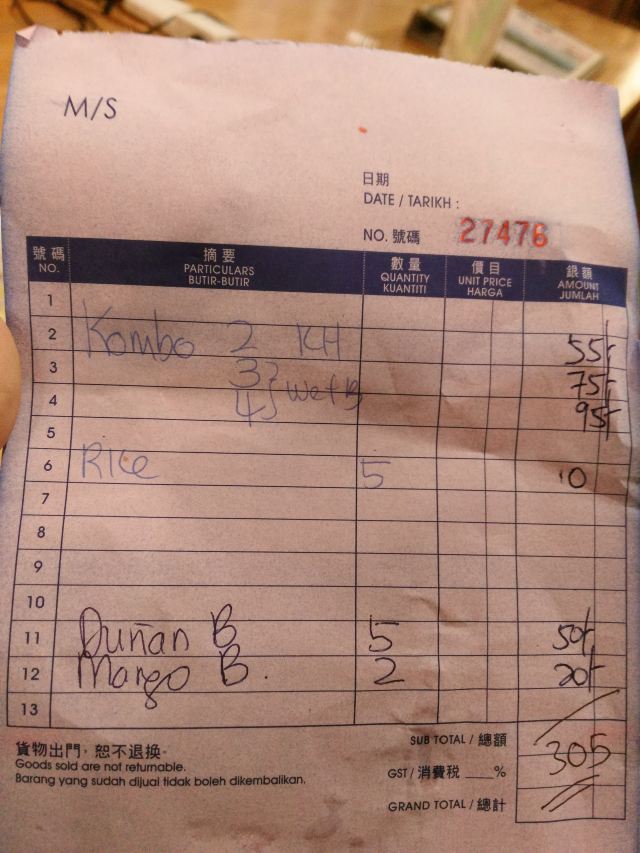 M/S
日期
DATE / TARIKH :
NO. 號碼 27476
號碼 NO. 摘要 PARTICULARS BUTIR-BUTIR 數量 QUANTITY KUANTITI 價目 UNIT PRICE HARGA 銀額 AMOUNT JUMLAH
1
2 Kombo 2 KH 55/-
3 3 } 75/-
4 4 } Wet B 95/-
5
6 Rice 5 10
7
8
9
10
11 Durian B 5 50/-
12 Mango B. 2 20/-
13
貨物出門，恕不退換。 SUB TOTAL / 總額
Goods sold are not returnable. 305
Barang yang sudah dijual tidak boleh dikembalikan. GST / 消費稅 ___%
GRAND TOTAL / 總計